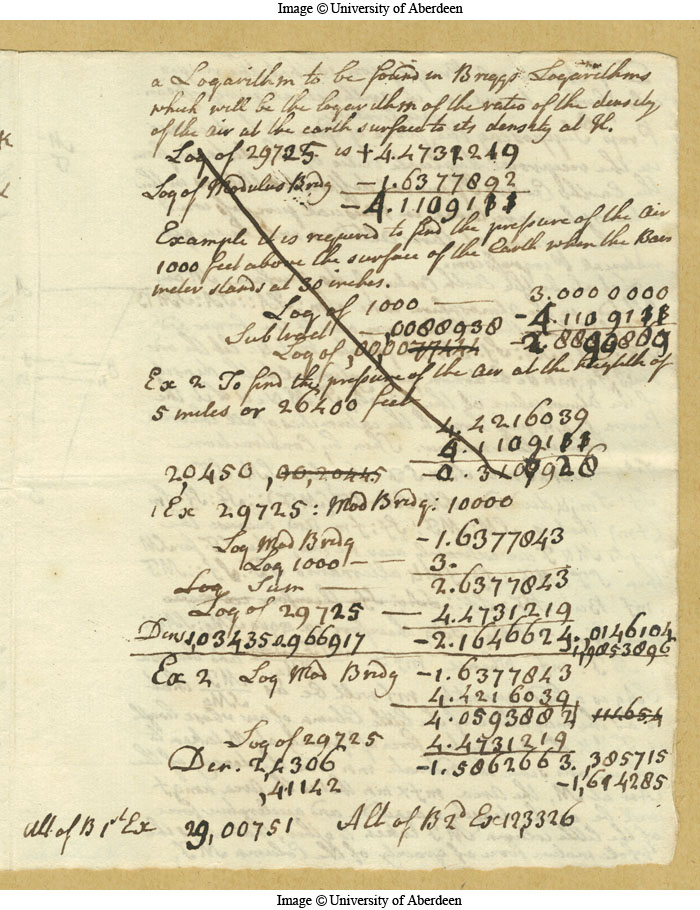 Image © University of Aberdeen
a Logarithm to be found in Briggs Logarithms
which will be the logarithm of the ratio of the density
of the air at the earth surface to its density at H.
Log of 29725 is +4.4731219
Log of Modulus Brdg -1.6377892
-4.1109111
Example it is required to find the pressure of the air
1000 feet above the surface of the Earth when the Baro
meter stands at 30 inches.
Log of 1000 — 3.0000000
Subtract — ,0088938 -4.1109111
Log of ,00,0077444 -2.8890889
Ex 2 To find the pressure of the air at the heighth of
5 miles or 26400 feet
4.4216039
4.1109111
2,0450 ,00,20445 -0.3109928
1 Ex 29725 : Mod Brdg : 10000
Log Mod Brdg -1.6377843
Log 1000 — — 3.
Log Sum — 2.6377843
Log of 29725 — 4.4731219
Dens 1,034350,966917 -2.1646624 ,0146104
1,9853896
Ex 2 Log Mod Brdg -1.6377843
4.4216039
4.0593882 114654
Log of 29725 4.4731219
Den. 2,4306 -1.5862663 ,385715
,41142 -1,614285
Alt of B 1st Ex 29,00751 Alt of B 2d Ex 12,3326
Image © University of Aberdeen